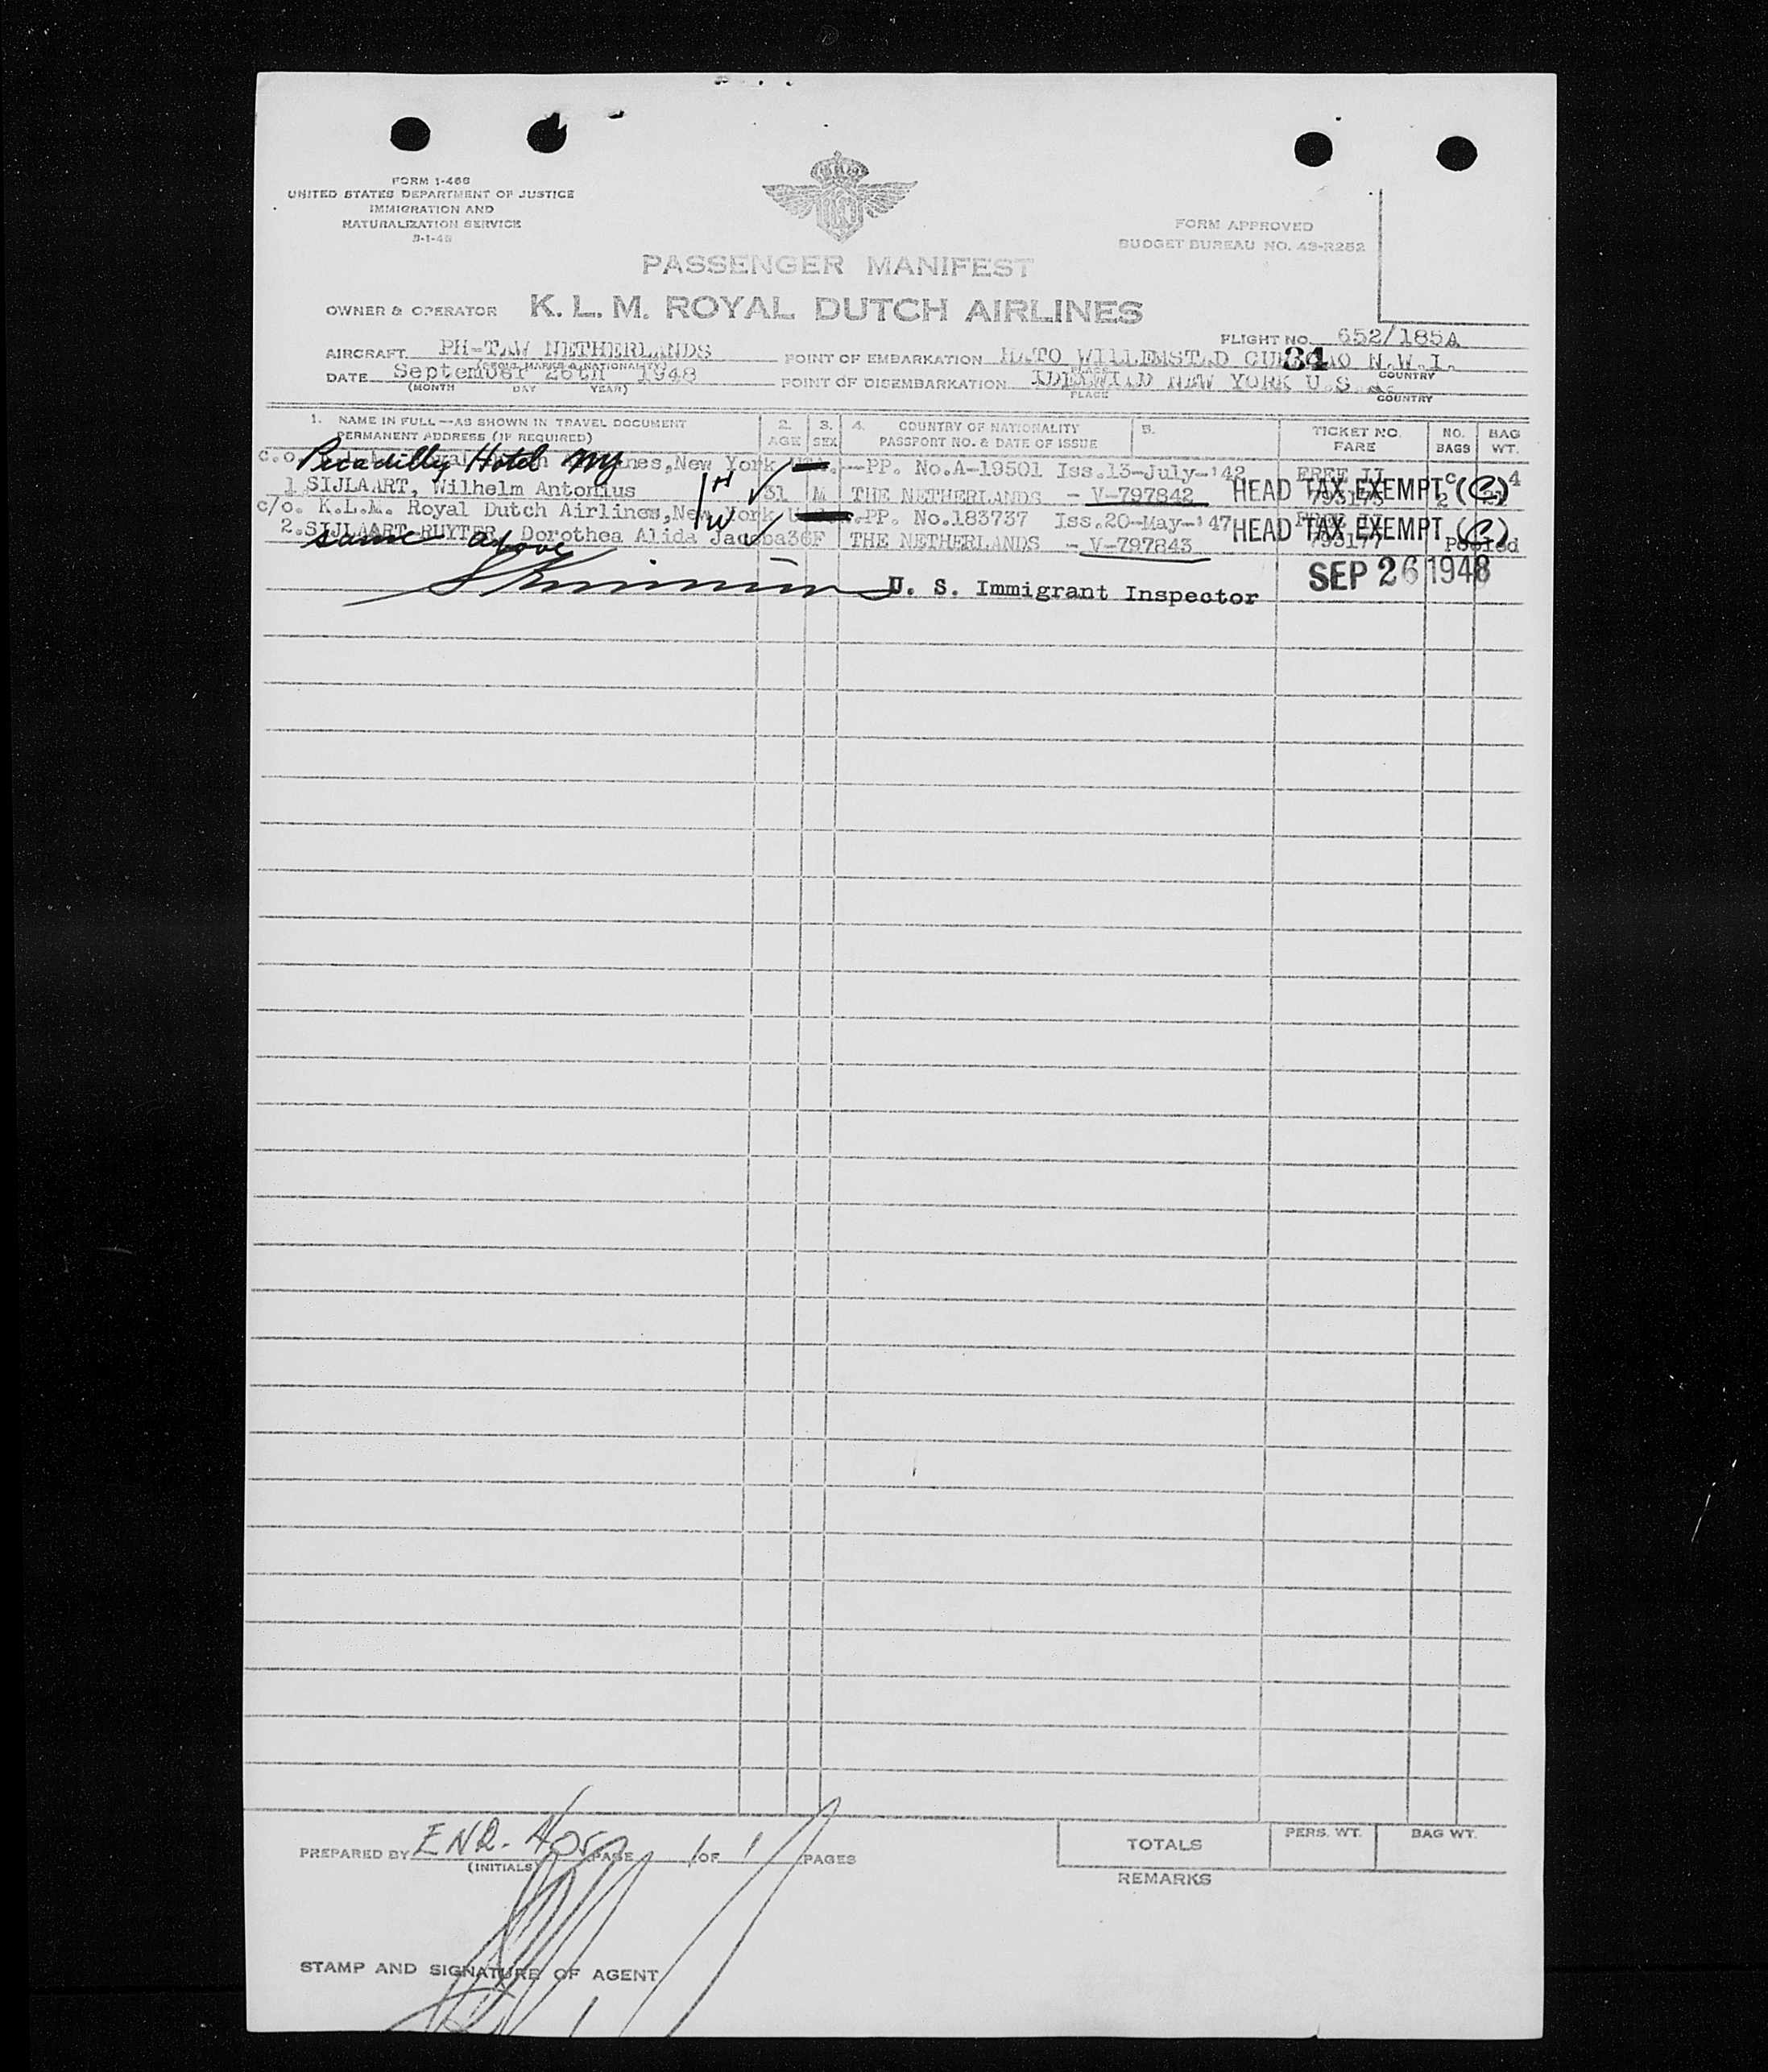 FORM I-466
UNITED STATES DEPARTMENT OF JUSTICE
IMMIGRATION AND
NATURALIZATION SERVICE
FORM APPROVED
BUDGET BUREAU NO. 43-R252
PASSENGER MANIFEST
OWNER & OPERATOR K. L. M. ROYAL DUTCH AIRLINES
FLIGHT NO. 652/185A
AIRCRAFT PH-TAW NETHERLANDS POINT OF EMBARKATION HATO WILLEMSTAD N.W.I.
34
(REGIS. MARKS & NATIONALITY) PLACE COUNTRY
DATE September 26th 1948 POINT OF DISEMBARKATION IDLEWILD NEW YORK U.S.A.
(MONTH DAY YEAR) PLACE COUNTRY
1. NAME IN FULL—AS SHOWN IN TRAVEL DOCUMENT 2. 3. 4. COUNTRY OF NATIONALITY 5. TICKET NO. NO. BAG
PERMANENT ADDRESS (IF REQUIRED) AGE SEX PASSPORT NO. & DATE OF ISSUE FARE BAGS WT.
Piccadilly Hotel NY
c.o. New York PP. No.A-19501 Iss.13-July-'42 FREE II
1 SIJLAART, Wilhelm Antonius 1 H 31 M THE NETHERLANDS - V-797842 HEAD TAX EXEMPT (C) 2
c/o. K.L.M. Royal Dutch Airlines, New York PP. No.183737 Iss.20-May-'47
2.SIJLAART-RUYTER, Dorothea Alida Jacoba 1 W 36 F THE NETHERLANDS - V-797843 HEAD TAX EXEMPT (C) 793177 Pooled
same above
U. S. Immigrant Inspector SEP 26 1948
PREPARED BY ENR. PAGE 1 OF 1 PAGES
(INITIALS)
TOTALS PERS. WT. BAG WT.
REMARKS
STAMP AND SIGNATURE OF AGENT